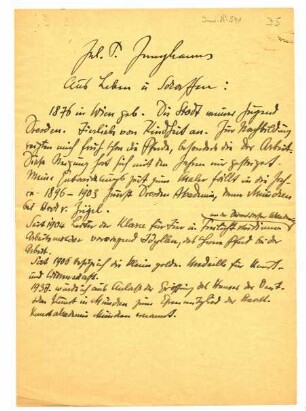 Jul. P. Junghanns
Aus Leben u Schaffen:
1876 in Wien geb. Die Stadt meiner Jugend
Dresden. Tierlieb von Kindheit an. Zur Nachbildung
reizten mich früh schon die Pferde, besonders die der Arbeit.
Diese Neigung hat sich mit den Jahren nur gesteigert.
Meine Entwicklungszeit zum Maler fällt in die Jah-
re 1896-1903 zuerst Dresden Akademie, dann München
bei Prof. v. Zügel.
Seit 1904 Leiter der Klasse für Tier u Freilicht
Arbeitsmotive vorwiegend Idyllen, das Pferd bei der
Arbeit.
Seit 1906 die kleine goldene Medaille für Kunst-
und Wissenschaft.
1937 wurde ich aus Anlaß der Eröffnung des Hauses der Deut-
schen Kunst in München zum Ehrenmitglied der
Kunstakademie München ernannt.